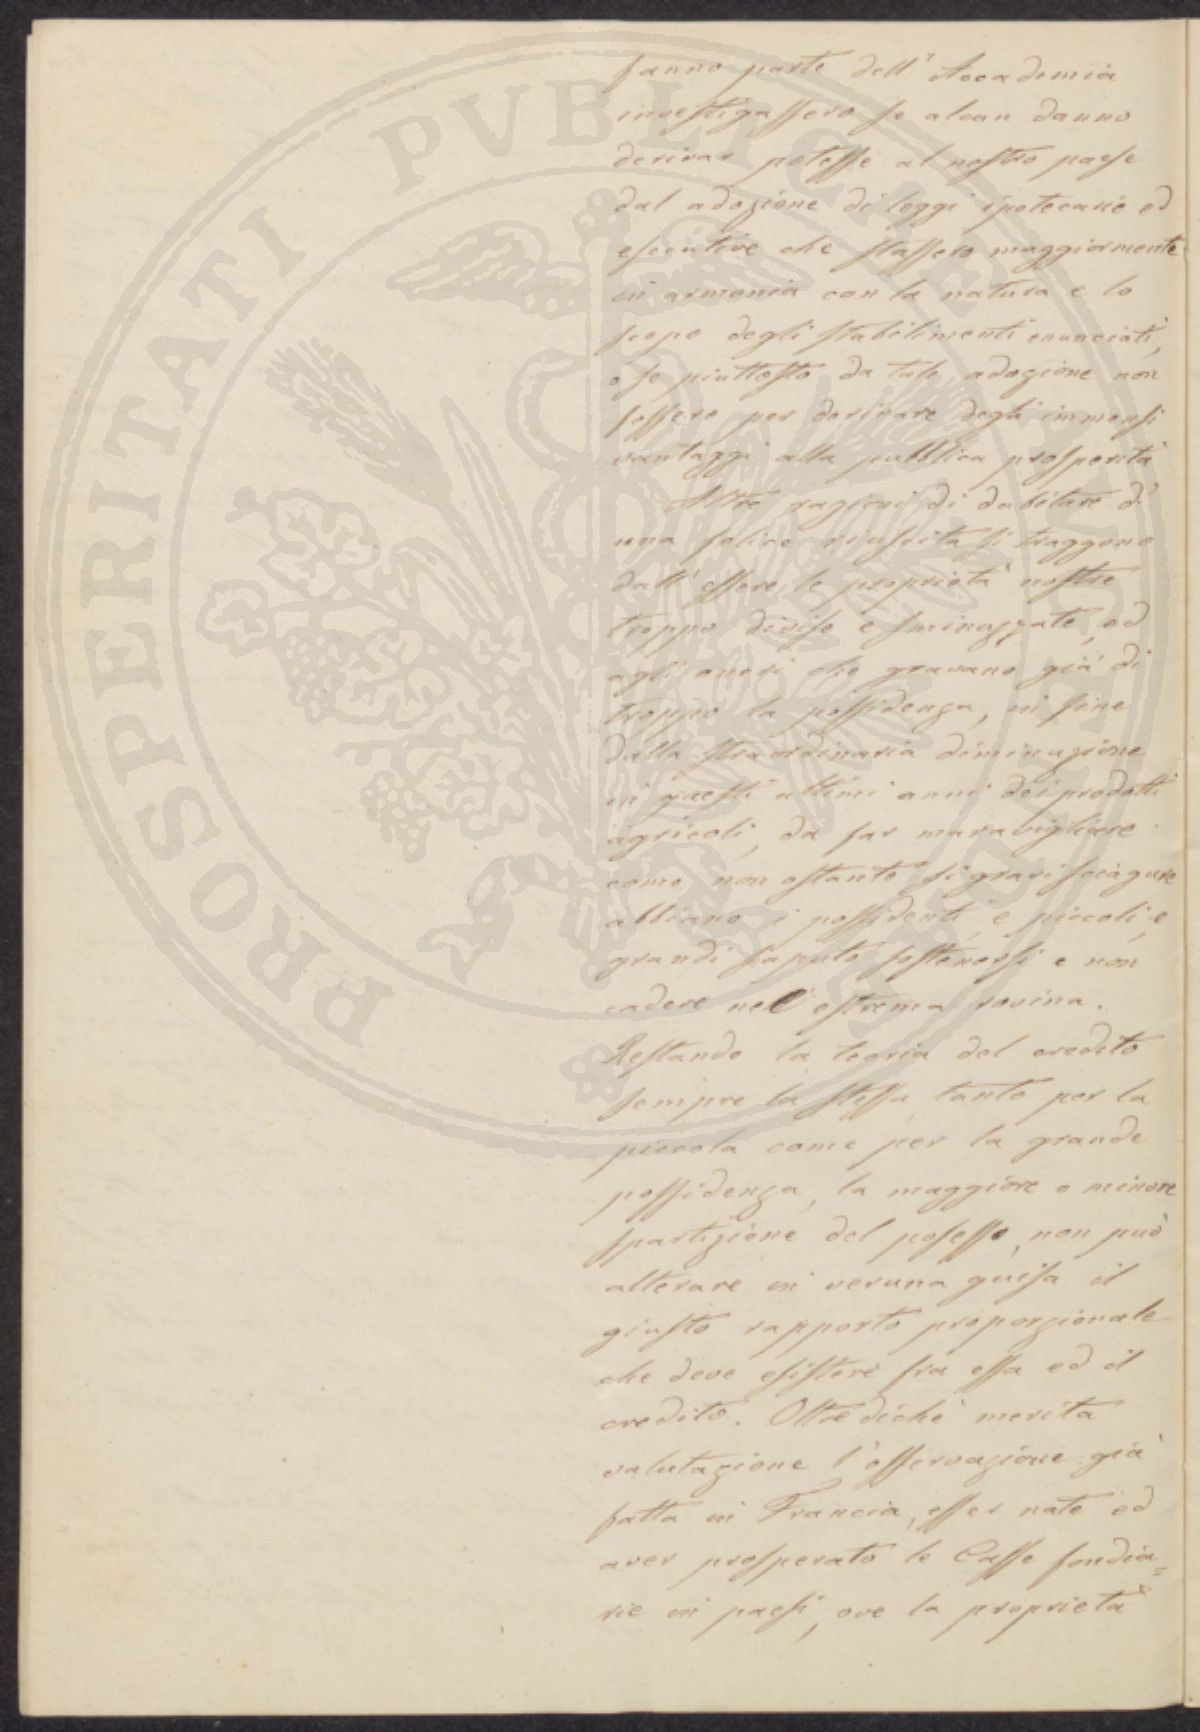 fanno parte dell'Accademia
investigassero se alcun danno
derivar potesse al nostro paese
dal adozione di leggi ipotecarie ed
esecutive che stassero maggiormente
in armonia con la natura e lo
scopo degli stabilimenti enunciati,
o se piuttosto da tale adozione non
fossero per derivare degli immensi
vantaggi alla pubblica prosperità
Altre ragioni di dubitare d'
una felice riuscita si traggono
dall'essere le proprietà nostre
troppo divise e sminuzzate, ed
agli oneri che gravano già di
troppo la possidenza, in fine
dalla straordinaria diminuzione
in questi ultimi anni dei prodotti
agricoli, da far maravigliare
come non ostante si gravi sciagure
abbiano i possidenti e piccoli, e
grandi saputo sostenersi e non
cadere nell'estrema rovina.
Restando la teoria del credito
sempre la stessa tanto per la
piccola come per la grande
possidenza, la maggiore o minore
spartizione del posesso, non può
alterare in veruna guisa il
giusto rapporto proporzionale
che deve esistere fra essa ed il
credito. Oltrediché merita
valutazione l'osservazione già
fatta in Francia, esser nate ed
aver prosperato le Casse fondia=
rie in paesi, ove la proprietà
PROSPERITATI PVBLICAE